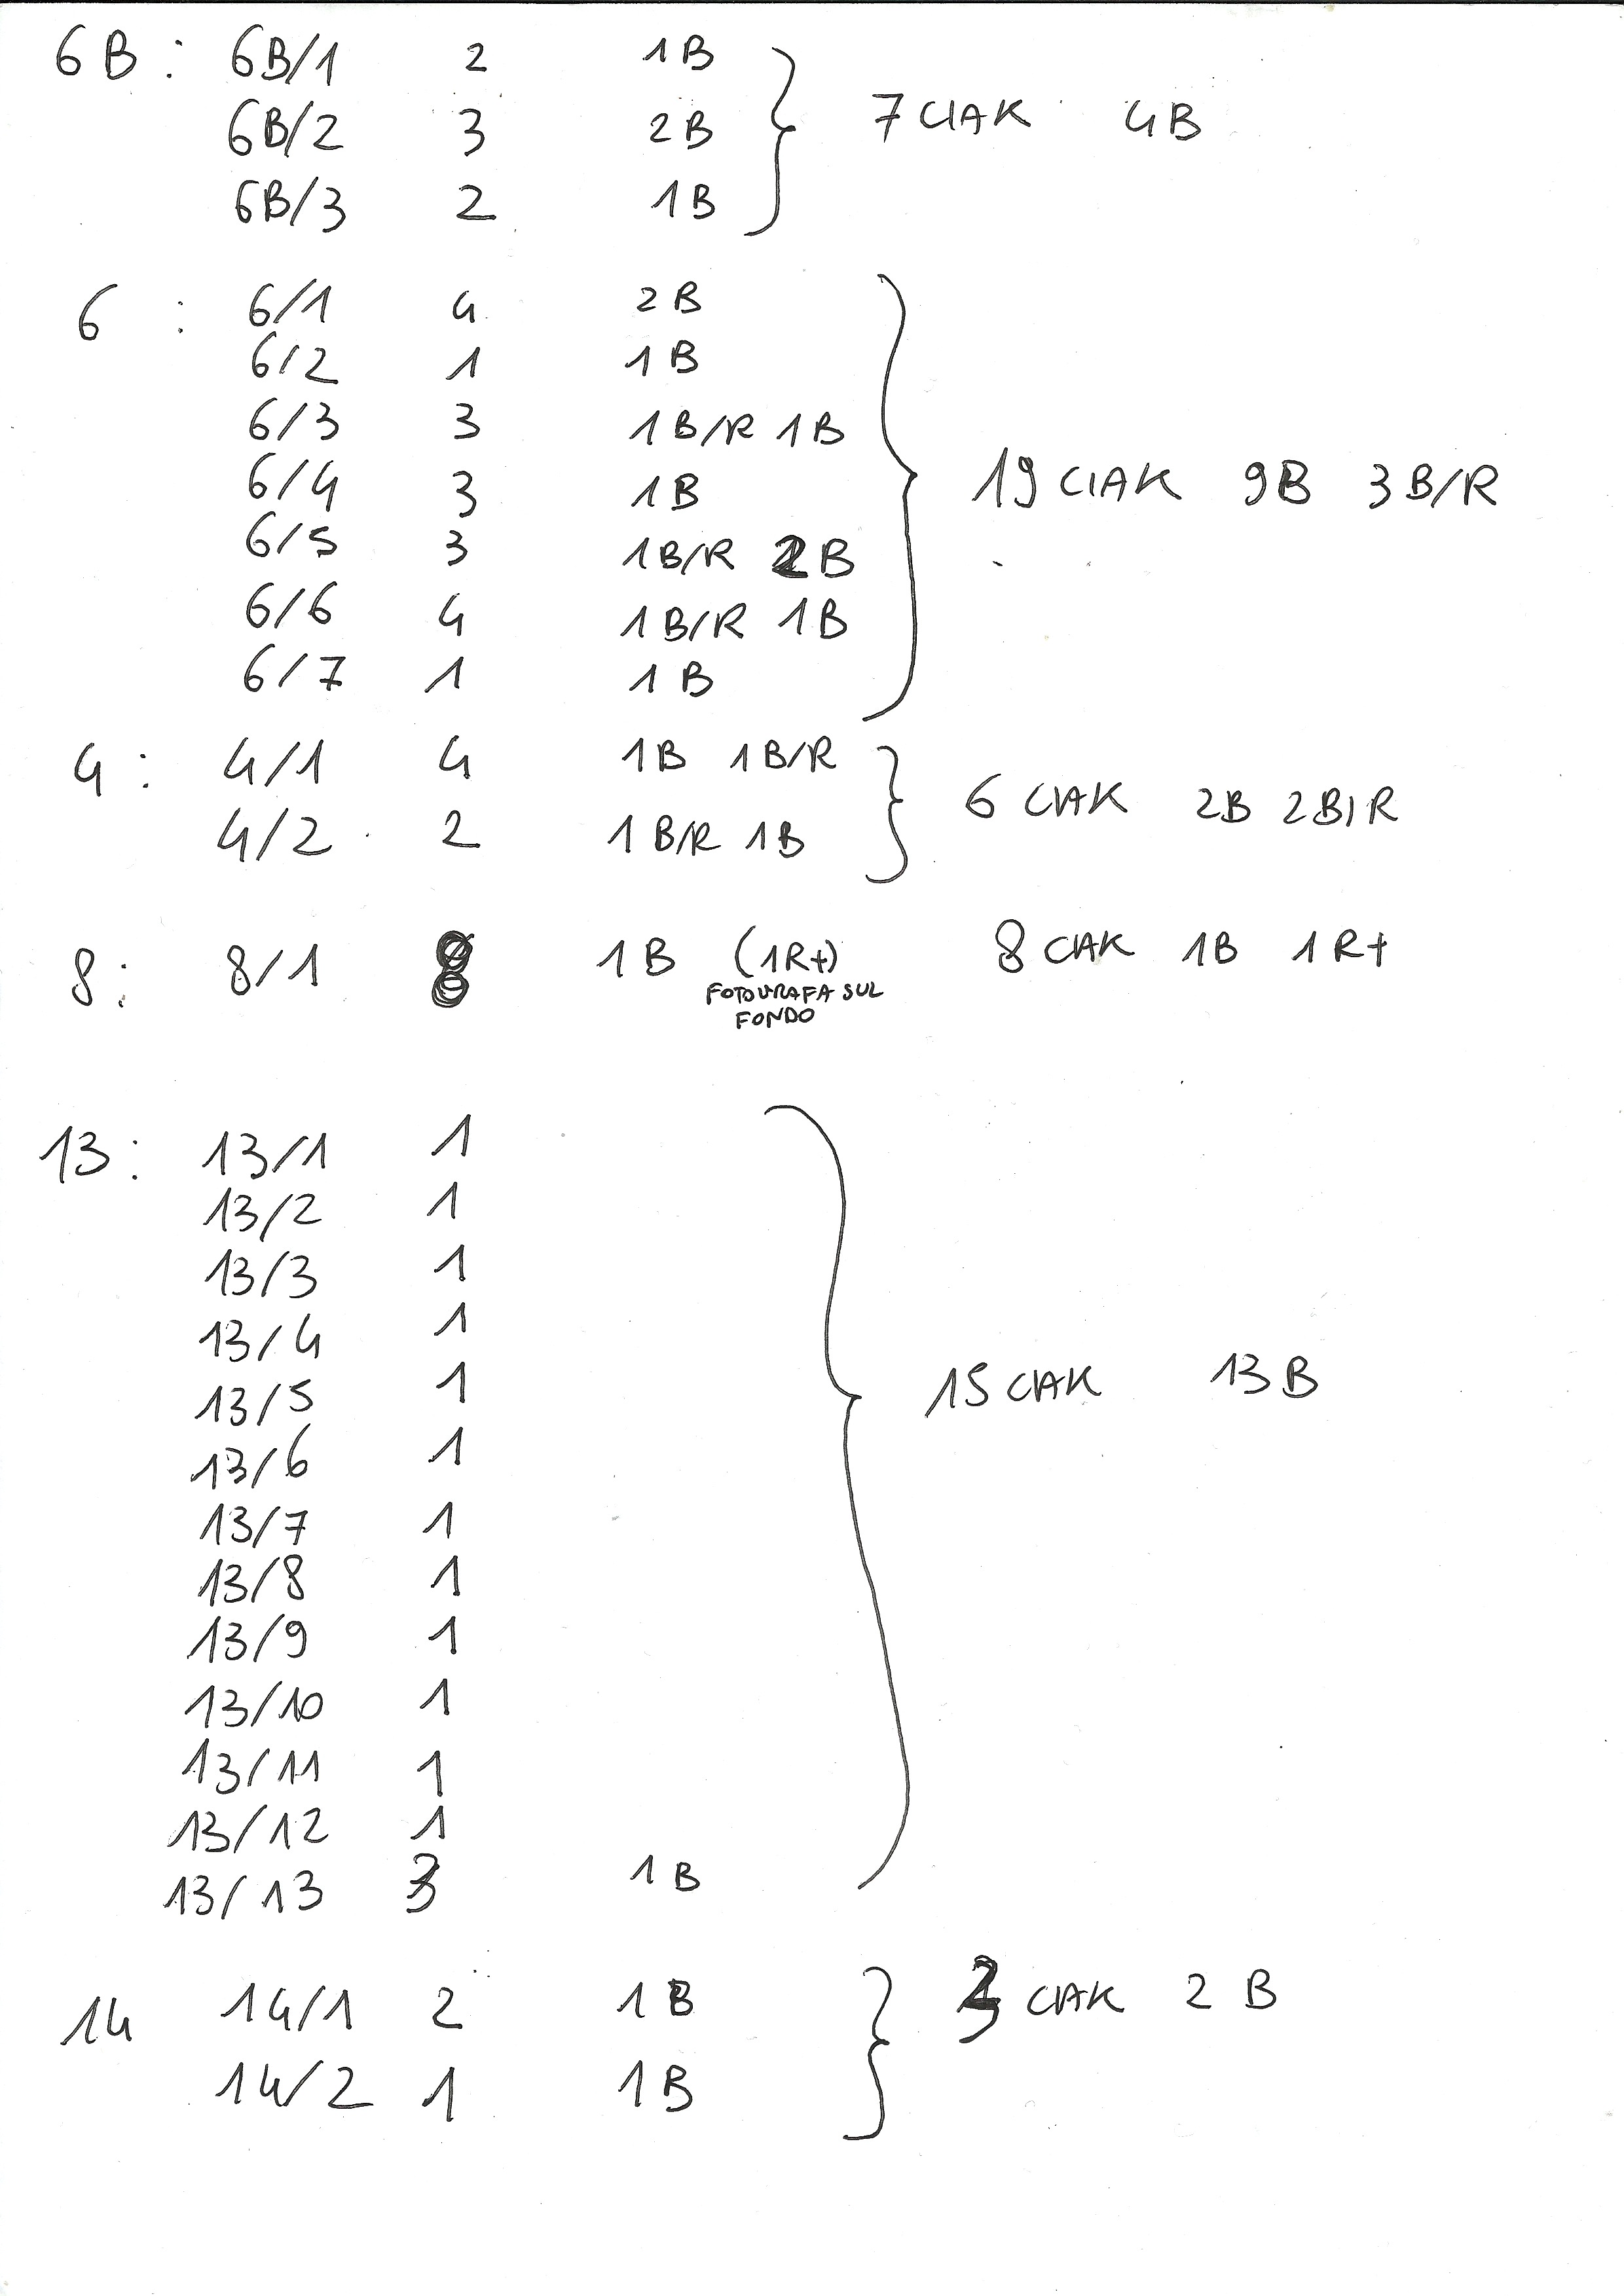 6B : 6B/1 2 1B
6B/2 3 2B 7 CIAK 4B
6B/3 2 1B
6 : 6/1 4 2B
6/2 1 1B
6/3 3 1B/R 1B
6/4 3 1B 19 CIAK 9B 3B/R
6/5 3 1B/R 2B
6/6 4 1B/R 1B
6/7 1 1B
4 : 4/1 4 1B 1B/R
4/2 2 1B/R 1B 6 CIAK 2B 2B/R
8 : 8/1 8 1B (1R+) 8 CIAK 1B 1R+
FOTOGRAFA SUL
FONDO
13 : 13/1 1
13/2 1
13/3 1
13/4 1
13/5 1 15 CIAK 13B
13/6 1
13/7 1
13/8 1
13/9 1
13/10 1
13/11 1
13/12 1
13/13 3 1B
14 14/1 2 1B 3 CIAK 2B
14/2 1 1B